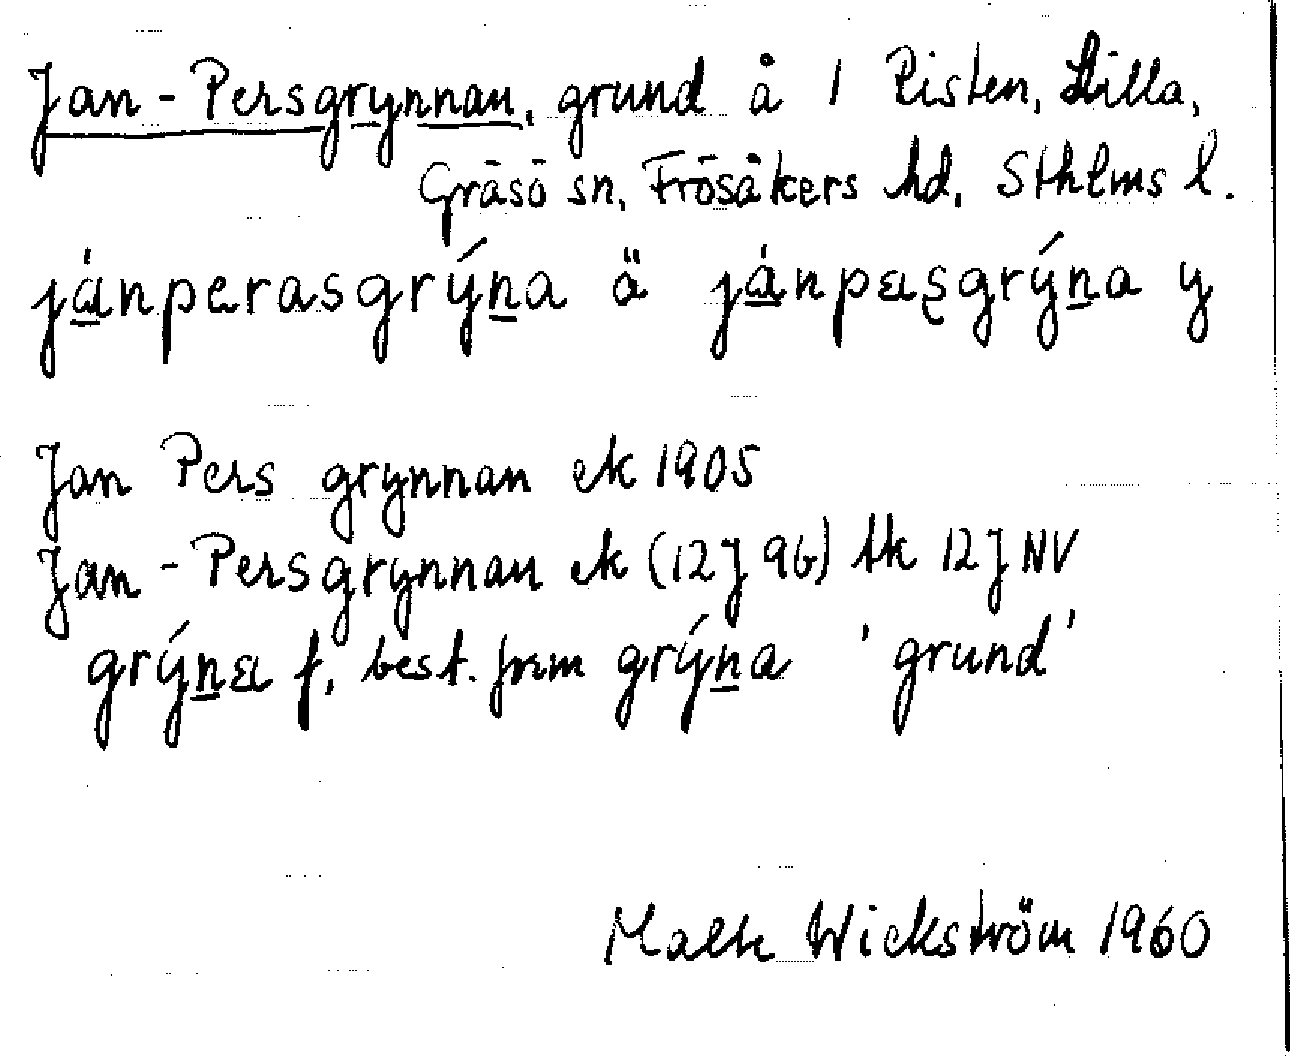 Jan-Persgrynnan, grund å 1 Risten, Lilla,
Gräsö sn, Frösåkers hd, Sthlms l.
jánperasgrýna ä jánpæşgrýna y
Jan Pers grynnan ek 1905
Jan-Persgrynnan ek (12J 9b) tk 12J NV
grýnæ f, best. form grýna 'grund'
Wickström 1960